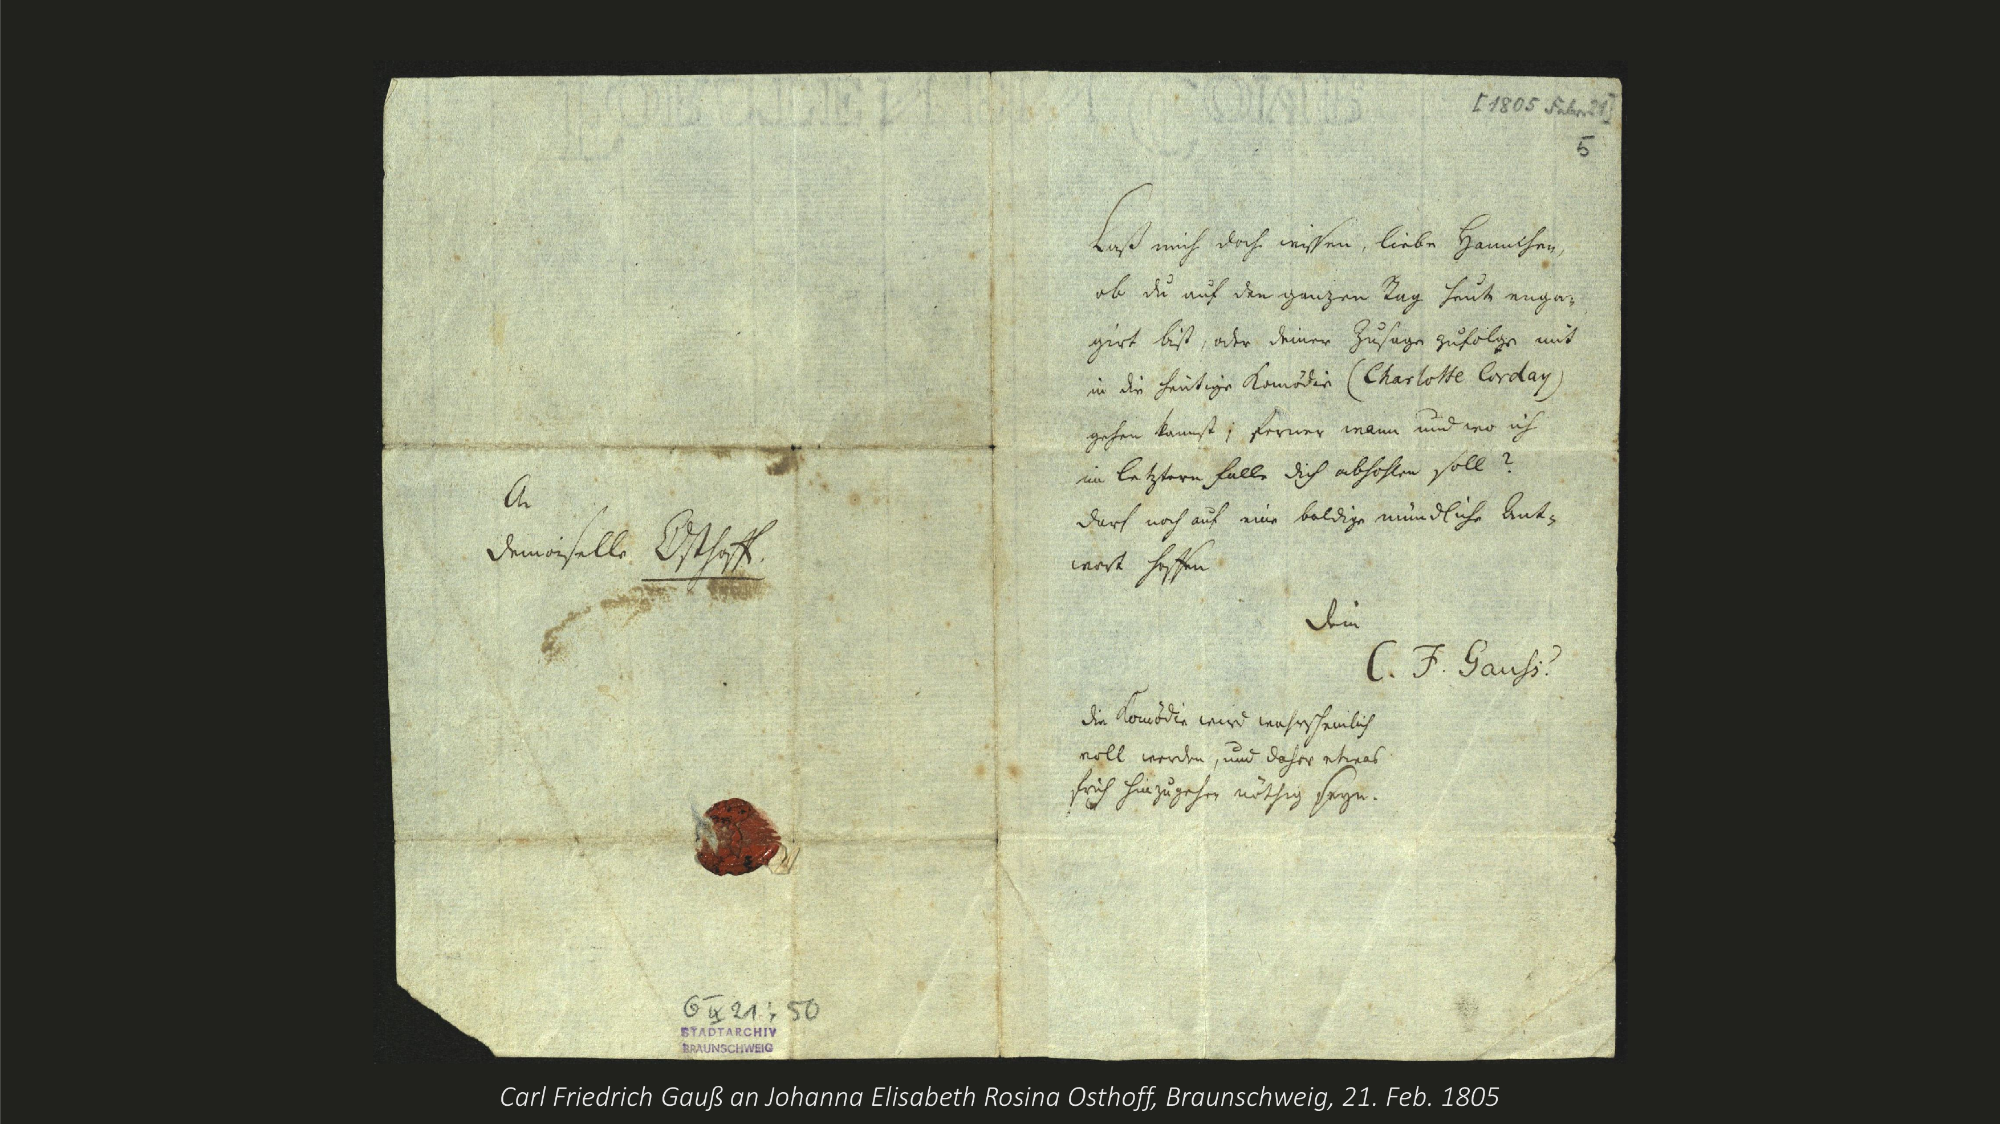 An
Demoiselle Osthoff.
G IX 21: 50
STADTARCHIV
BRAUNSCHWEIG
[1805 Febr. 21]
5
Laß mich doch wissen, liebe Hannchen,
ob du auf den ganzen Tag heute enga-
girt bist, oder deiner Zusage zufolge mit
in die heutige Komödie (Charlotte Corday)
gehen kannst; ferner wann und wo ich
im letztern Falle dich abhohlen soll?
Darf noch auf eine baldige mündliche Ant-
wort hoffen
Dein
C. F. Gauß.
Die Komödie wird wahrscheinlich
voll werden, und daher etwas
früh hinzugehen nöthig seyn.
Carl Friedrich Gauß an Johanna Elisabeth Rosina Osthoff, Braunschweig, 21. Feb. 1805